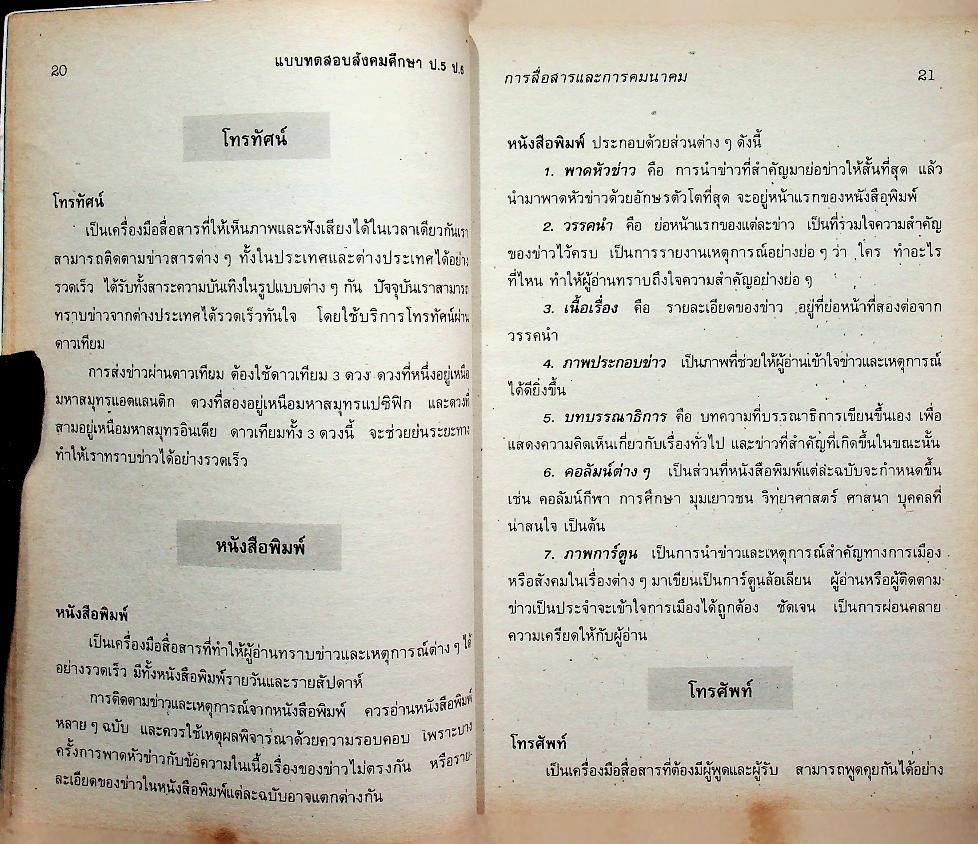 20
แบบทดสอบสังคมศึกษา ป.5 ป.6
โทรทัศน์
โทรทัศน์
เป็นเครื่องมือสื่อสารที่ให้เห็นภาพและฟังเสียงได้ในเวลาเดียวกันเรา
สามารถติดตามข่าวสารต่าง ๆ ทั้งในประเทศและต่างประเทศได้อย่าง
รวดเร็ว ได้รับทั้งสาระความบันเทิงในรูปแบบต่าง ๆ กัน ปัจจุบันเราสามารถ
ทราบข่าวจากต่างประเทศได้รวดเร็วทันใจ โดยใช้บริการโทรทัศน์ผ่าน
ดาวเทียม
การส่งข่าวผ่านดาวเทียม ต้องใช้ดาวเทียม 3 ดวง ดวงที่หนึ่งอยู่เหนือ
มหาสมุทรแอตแลนติก ดวงที่สองอยู่เหนือมหาสมุทรแปซิฟิก และดวงที่
สามอยู่เหนือมหาสมุทรอินเดีย ดาวเทียมทั้ง 3 ดวงนี้ จะช่วยย่นระยะทาง
ทำให้เราทราบข่าวได้อย่างรวดเร็ว
หนังสือพิมพ์
หนังสือพิมพ์
เป็นเครื่องมือสื่อสารที่ทำให้ผู้อ่านทราบข่าวและเหตุการณ์ต่าง ๆ ได้
อย่างรวดเร็ว มีทั้งหนังสือพิมพ์รายวันและรายสัปดาห์
การติดตามข่าวและเหตุการณ์จากหนังสือพิมพ์ ควรอ่านหนังสือพิมพ์
หลาย ๆ ฉบับ และควรใช้เหตุผลพิจารณาด้วยความรอบคอบ เพราะบาง
ครั้งการพาดหัวข่าวกับข้อความในเนื้อเรื่องของข่าวไม่ตรงกัน หรือราย-
ละเอียดของข่าวในหนังสือพิมพ์แต่ละฉบับอาจแตกต่างกัน
การสื่อสารและการคมนาคม
21
หนังสือพิมพ์ ประกอบด้วยส่วนต่าง ๆ ดังนี้
1. พาดหัวข่าว คือ การนำข่าวที่สำคัญมาย่อข่าวให้สั้นที่สุด แล้ว
นำมาพาดหัวข่าวด้วยอักษรตัวโตที่สุด จะอยู่หน้าแรกของหนังสือพิมพ์
2. วรรคนำ คือ ย่อหน้าแรกของแต่ละข่าว เป็นที่รวมใจความสำคัญ
ของข่าวไว้ครบ เป็นการรายงานเหตุการณ์อย่างย่อ ๆ ว่า ใคร ทำอะไร
ที่ไหน ทำให้ผู้อ่านทราบถึงใจความสำคัญอย่างย่อ ๆ
3. เนื้อเรื่อง คือ รายละเอียดของข่าว อยู่ที่ย่อหน้าที่สองต่อจาก
วรรคนำ
4. ภาพประกอบข่าว เป็นภาพที่ช่วยให้ผู้อ่านเข้าใจข่าวและเหตุการณ์
ได้ดียิ่งขึ้น
5. บทบรรณาธิการ คือ บทความที่บรรณาธิการเขียนขึ้นเอง เพื่อ
แสดงความคิดเห็นเกี่ยวกับเรื่องทั่วไป และข่าวที่สำคัญที่เกิดขึ้นในขณะนั้น
6. คอลัมน์ต่าง ๆ เป็นส่วนที่หนังสือพิมพ์แต่ละฉบับจะกำหนดขึ้น
เช่น คอลัมน์กีฬา การศึกษา มุมเยาวชน วิทยาศาสตร์ ศาสนา บุคคลที่
น่าสนใจ เป็นต้น
7. ภาพการ์ตูน เป็นการนำข่าวและเหตุการณ์สำคัญทางการเมือง
หรือสังคมในเรื่องต่าง ๆ มาเขียนเป็นการ์ตูนล้อเลียน ผู้อ่านหรือผู้ติดตาม
ข่าวเป็นประจำจะเข้าใจการเมืองได้ถูกต้อง ชัดเจน เป็นการผ่อนคลาย
ความเครียดให้กับผู้อ่าน
โทรศัพท์
โทรศัพท์
เป็นเครื่องมือสื่อสารที่ต้องมีผู้พูดและผู้รับ สามารถพูดคุยกันได้อย่าง